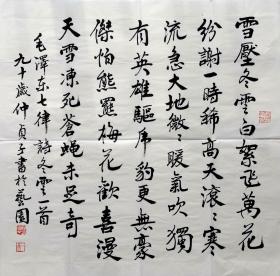 雪壓冬雲白絮飛萬花
紛謝一時稀高天滾〻寒
流急大地微〻暖氣吹獨
有英雄驅虎豹更無豪
傑怕熊羆梅花歡喜漫
天雪凍死蒼蝇未足奇
毛澤東七律詩冬雲一首
九十歲仲貞子書於藝園